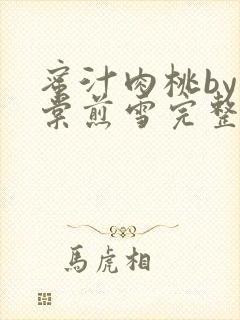 蜜汁肉桃by
棠煎雪完整
馬虎相